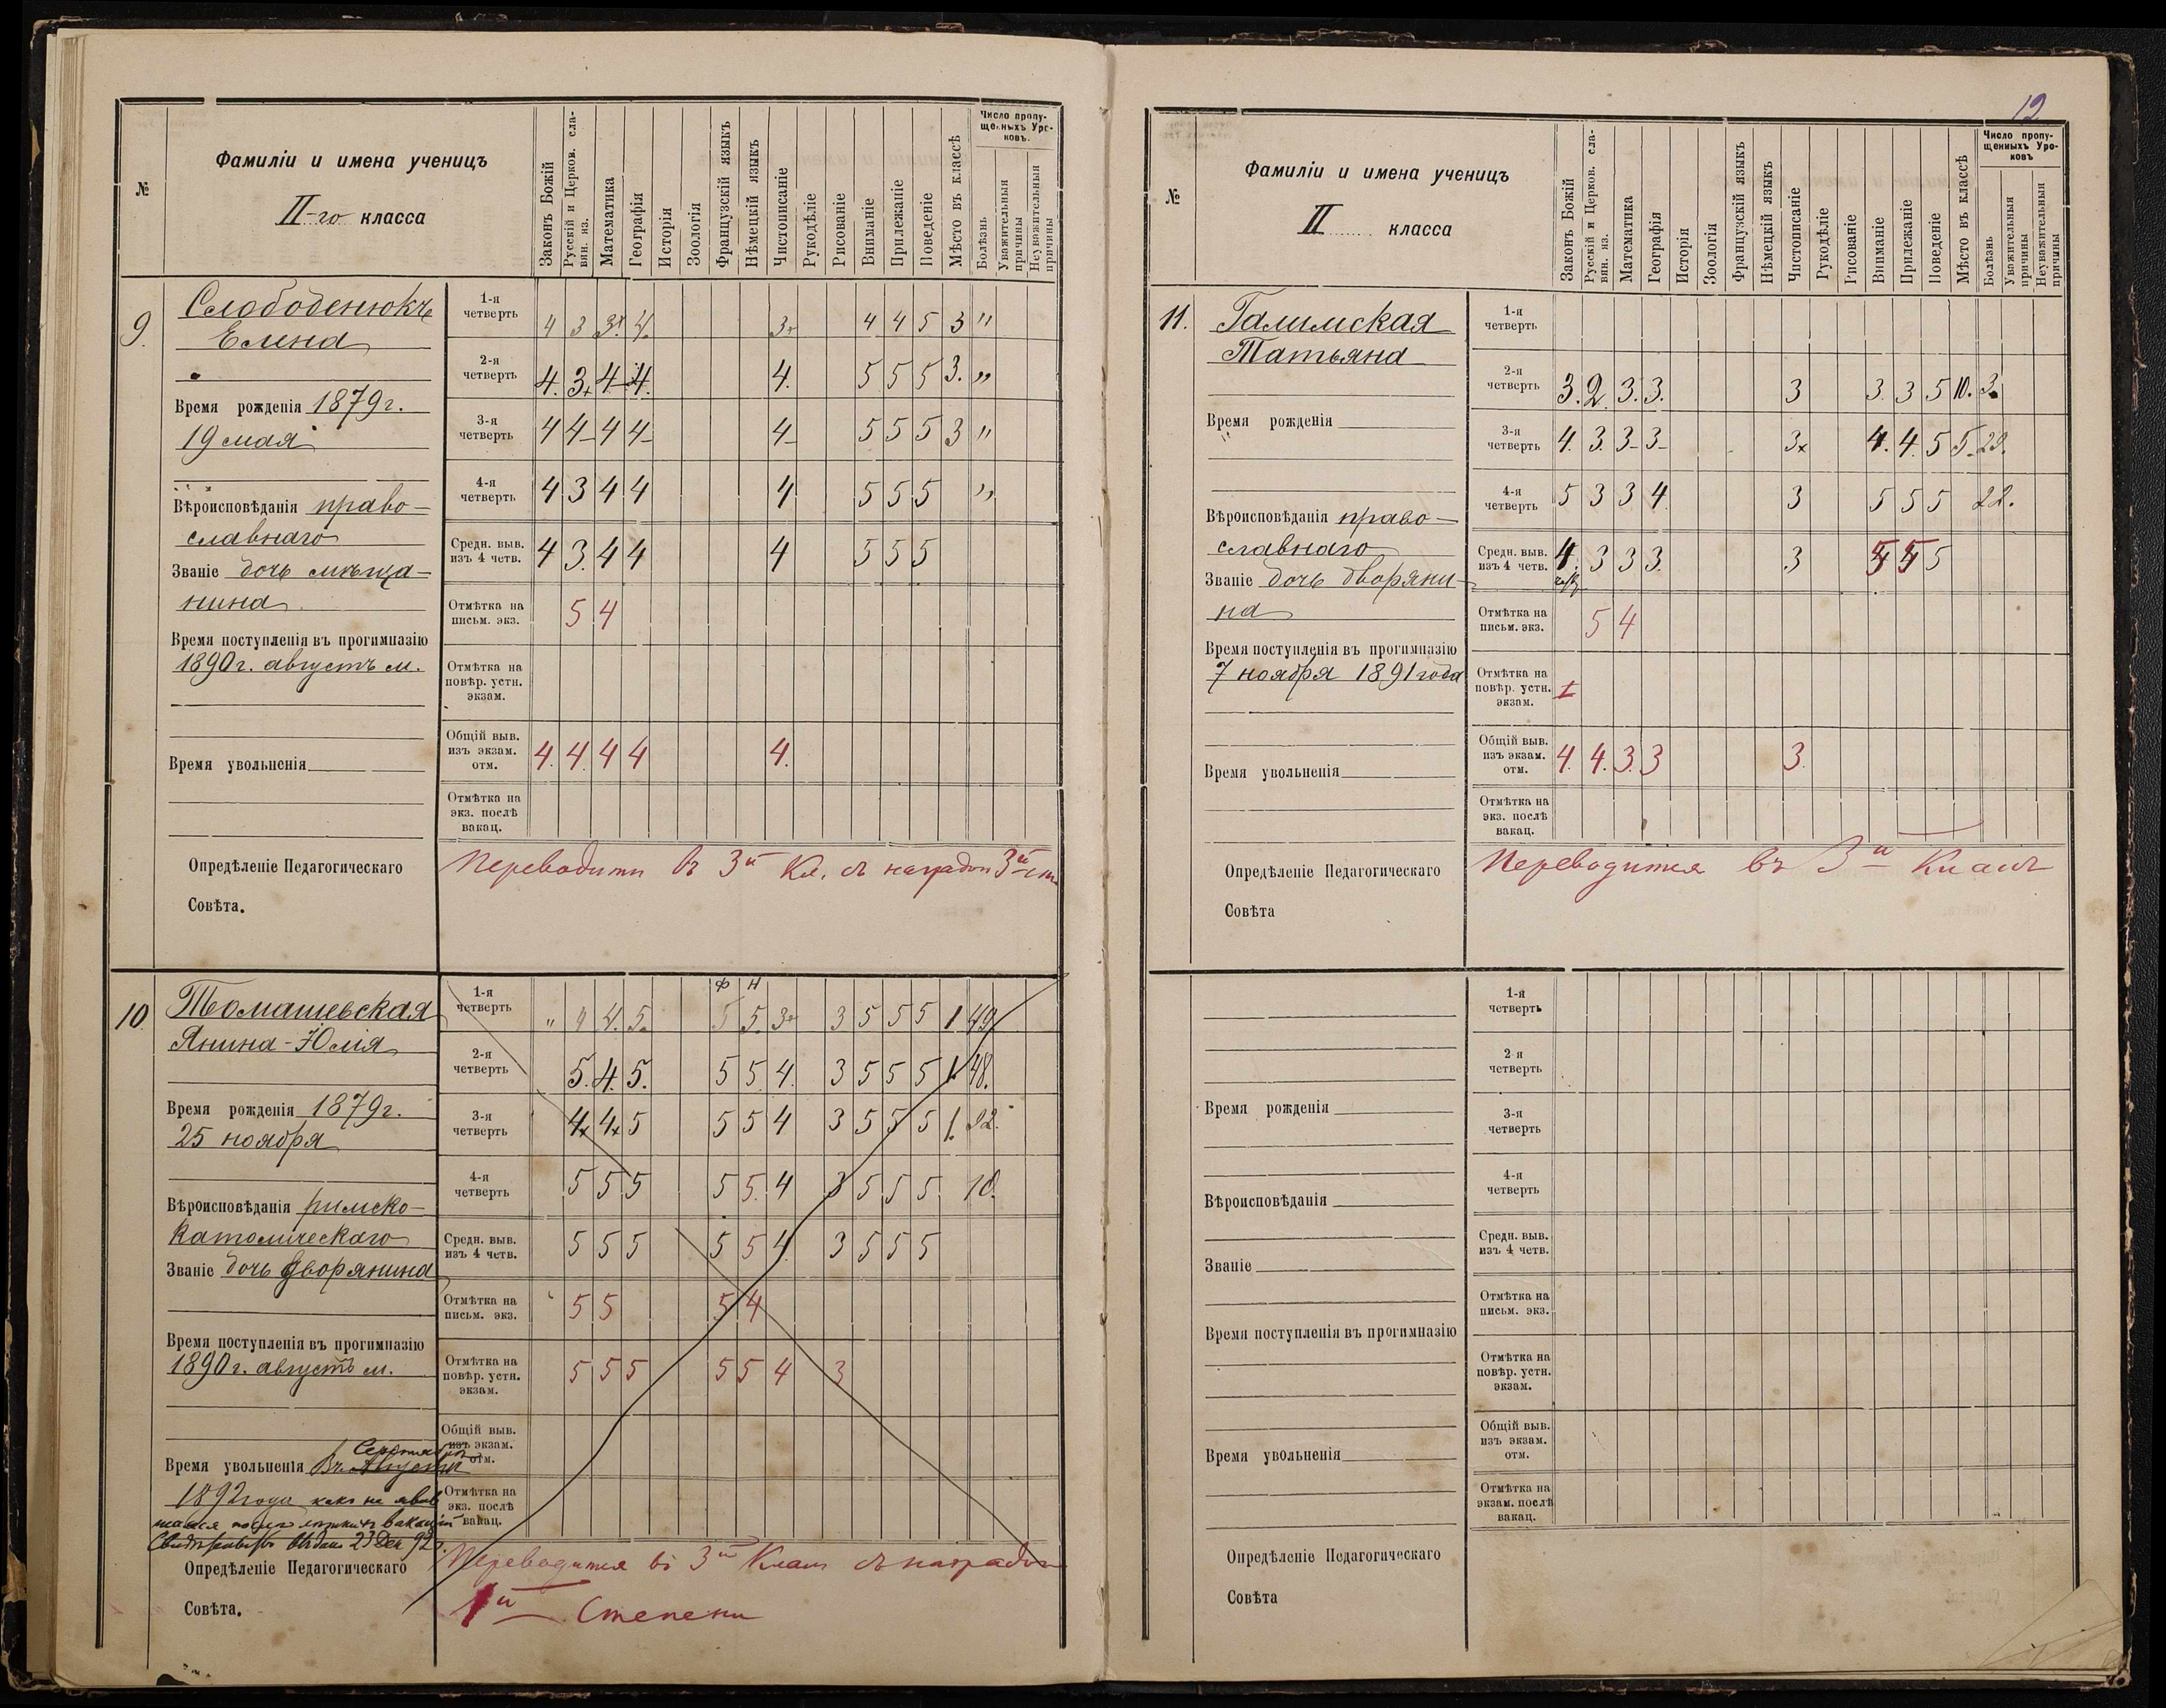 №
Фамиліи и имена ученицъ
II-го класса
Законъ Божій
Русскій и Церков. сла-
вян. яз.
Математика
Географія
Исторія
Зоологія
Французскій языкъ
Нѣмецкій языкъ
Чистописаніе
Рукодѣліе
Рисованіе
Вниманіе
Прилежаніе
Поведеніе
Мѣсто въ классѣ
Число пропу-
щенныхъ Уро-
ковъ.
Болѣзнь
Уважительныя
причины
Неуважительныя
причины
9.
Слободенюкъ
Елена
Время рожденія 1879 г.
19 мая
Вѣроисповѣданія право-
славнаго
Званіе дочь мѣща-
нина
Время поступленія въ прогимназію
1890 г. августъ м.
Время увольненія
1-я
четверть 4 3 3+ 4. 3+ 4 4 5 3 "
2-я
четверть 4. 3+ 4. 4. 4. 5 5 5 3. "
3-я
четверть 4 4- 4 4- 4- 5 5 5 3 "
4-я
четверть 4 3 4 4 4 5 5 5 "
Средн. выв.
изъ 4 четв. 4 3. 4 4 4 5 5 5
Отмѣтка на
письм. экз. 5 4
Отмѣтка на
повѣр. устн.
экзам.
Общій выв.
изъ экзам.
отм. 4. 4. 4 4 4.
Отмѣтка на
экз. послѣ
вакац.
Опредѣленіе Педагогическаго
Совѣта.
Переводити въ 3й Кл. съ наградой 3й
10.
Томашевская
Янина-Юлія
Время рожденія 1879 г.
25 ноября
Вѣроисповѣданія римско-
католическаго
Званіе дочь дворянина
Время поступленія въ прогимназію
1890 г. августъ м.
Время увольненія Въ Августѣ
1892 года какъ не явив
шаяся послѣ лѣтнихъ вакацій
выдано 23 Дек 92 г.
Ф Н
1-я
четверть " 4 4. 5. 5 5. 3+ 3 5 5 5 1. 49
2-я
четверть 5. 4. 5. 5 5 4. 3 5 5 5 1. 48.
3-я
четверть 4+ 4+ 5 5 5 4 3 5 5 5 1. 92.
4-я
четверть 5 5 5 5 5. 4 3 5 5 5 10.
Средн. выв.
изъ 4 четв. 5 5 5 5 5 4 3 5 5 5
Отмѣтка на
письм. экз. 5 5 5 4
Отмѣтка на
повѣр. устн.
экзам. 5 5 5 5 5 4 3
Общій выв.
изъ экзам.
отм.
Отмѣтка на
экз. послѣ
вакац.
Опредѣленіе Педагогическаго
Совѣта.
Переводится въ 3й Классъ съ наградой
1й Степени
12
№
Фамиліи и имена ученицъ
II класса
Законъ Божій
Русскій и Церков. сла-
вян. яз.
Математика
Географія
Исторія
Зоологія
Французскій языкъ
Нѣмецкій языкъ
Чистописаніе
Рукодѣліе
Рисованіе
Вниманіе
Прилежаніе
Поведеніе
Мѣсто въ классѣ
Число пропу-
щенныхъ Уро-
ковъ
Болѣзнь
Уважительныя
причины
Неуважительныя
причины
11.
Галимская
Татьяна
Время рожденія
Вѣроисповѣданія право-
славнаго
Званіе дочь дворяни-
на
Время поступленія въ прогимназію
7 ноября 1891 года
Время увольненія
1-я
четверть
2-я
четверть 3. 2. 3. 3. 3 3. 3 5 10. 3.
3-я
четверть 4. 3. 3- 3- 3+ 4. 4. 5 5. 29.
4-я
четверть 5 3 3 4. 3 5 5 5 22.
Средн. выв.
изъ 4 четв. 4. 3 3 3. 3 5
Отмѣтка на
письм. экз. 5 4
Отмѣтка на
повѣр. устн.
экзам.
Общій выв.
изъ экзам.
отм. 4. 4. 3. 3 3.
Отмѣтка на
экз. послѣ
вакац.
Опредѣленіе Педагогическаго
Совѣта
Переводится въ 3й Классъ
Время рожденія
Вѣроисповѣданія
Званіе
Время поступленія въ прогимназію
Время увольненія
1-я
четверть
2 я
четверть
3-я
четверть
4-я
четверть
Средн. выв.
изъ 4 четв.
Отмѣтка на
письм. экз.
Отмѣтка на
повѣр. устн.
экзам.
Общій выв.
изъ экзам.
отм.
Отмѣтка на
экзам. послѣ
вакац.
Опредѣленіе Педагогическаго
Совѣта